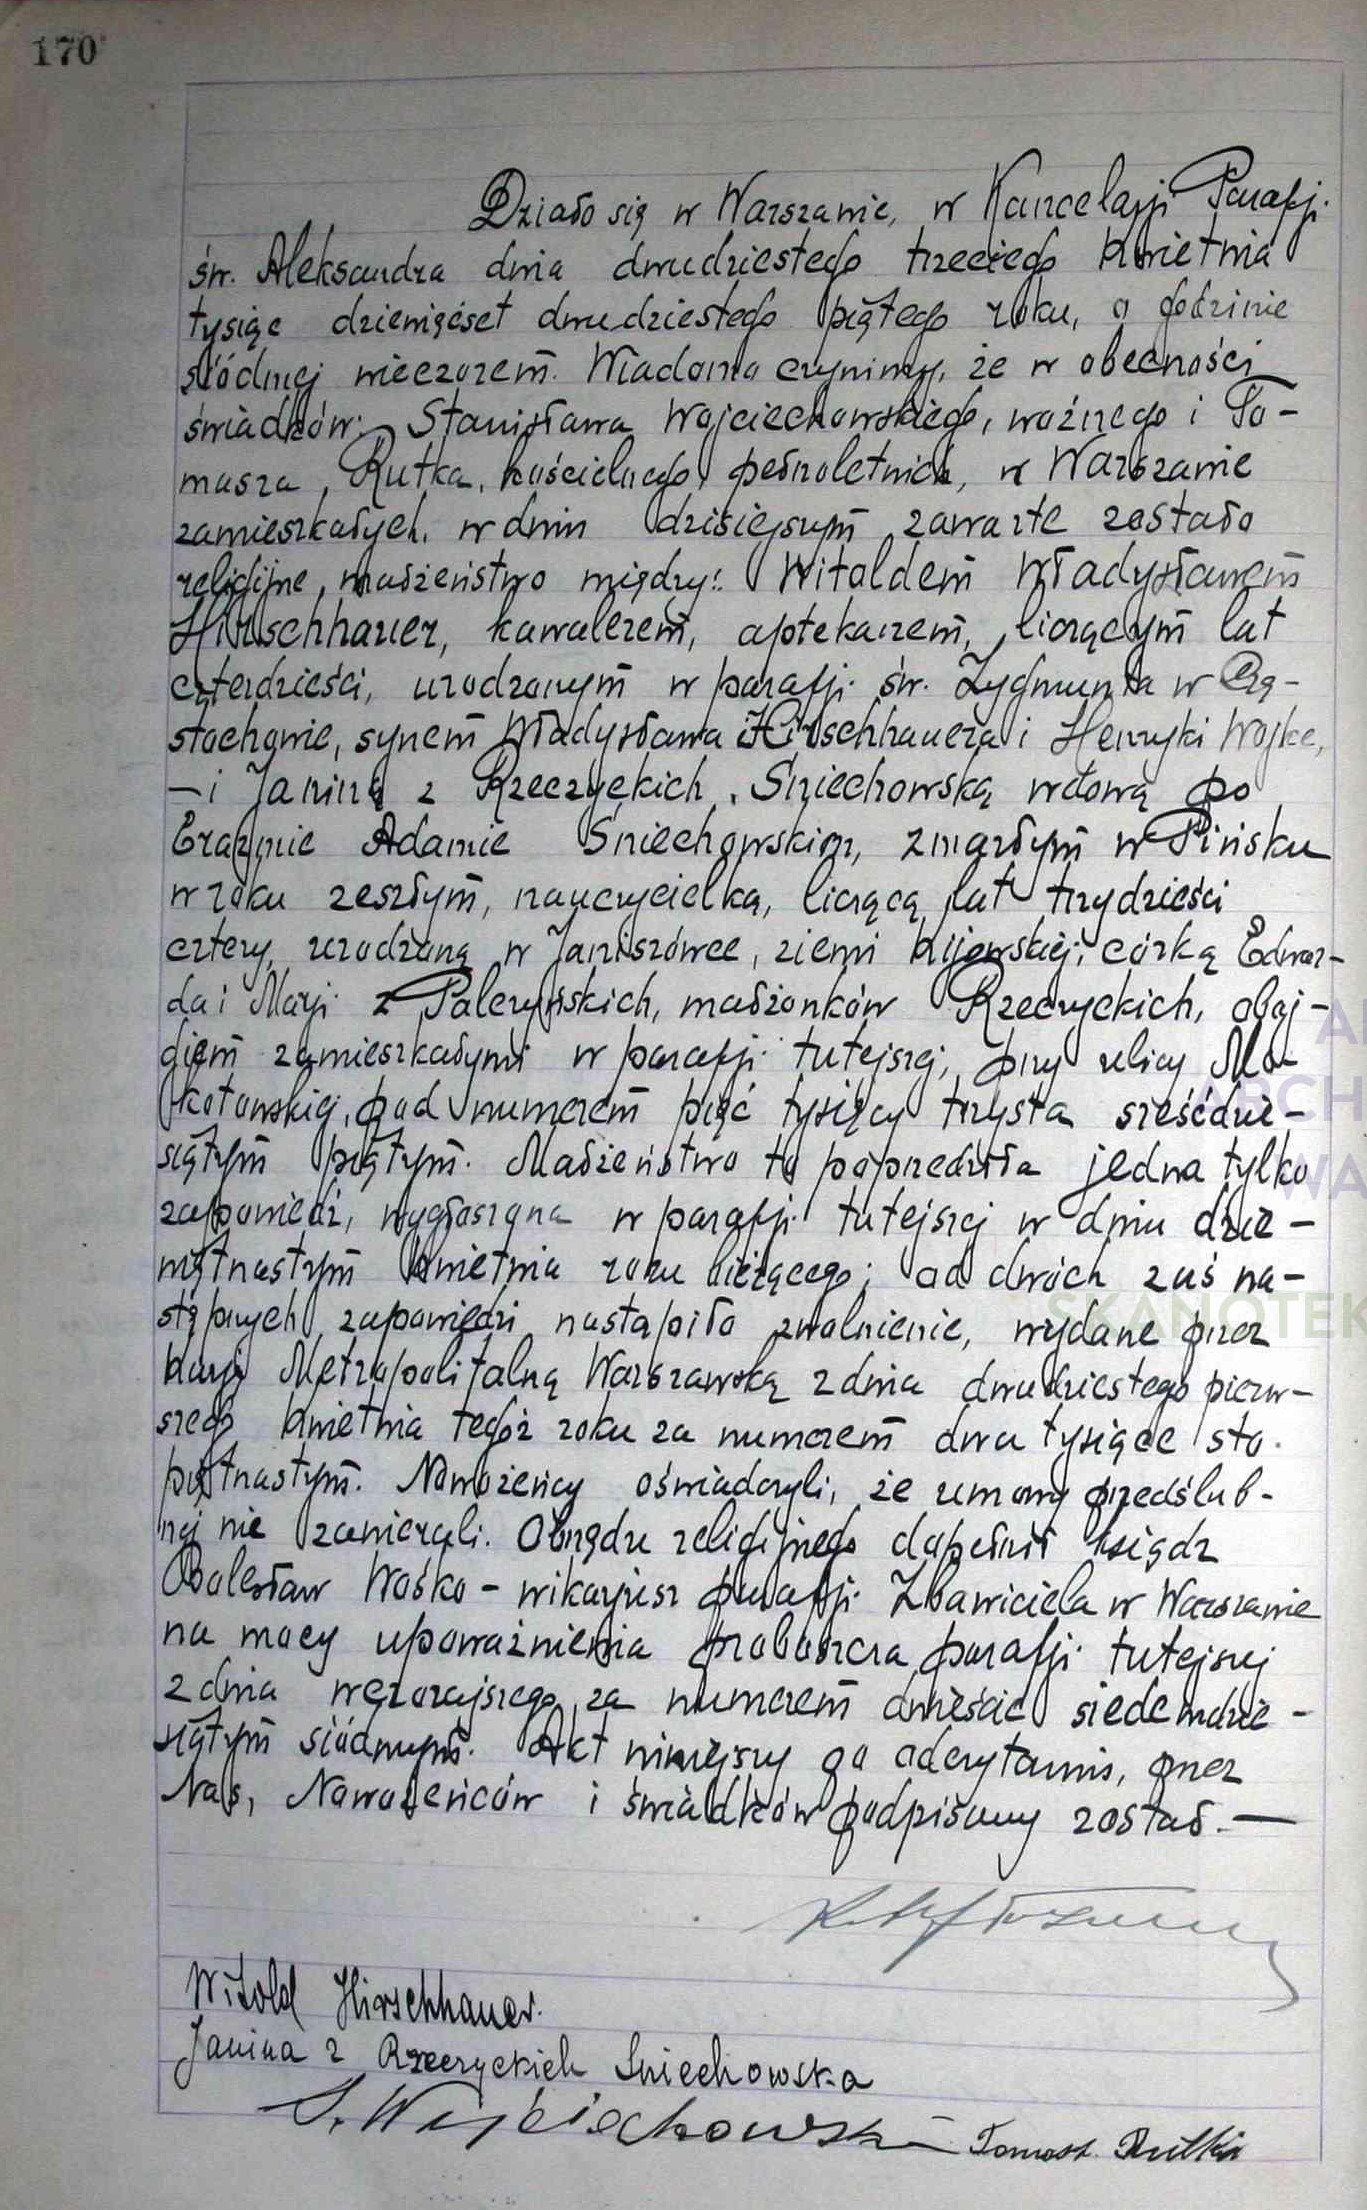 170
Działo się w Warszawie, w Kancelarji Parafji
św. Aleksandra dnia dwudziestego trzeciego kwietnia
tysiąc dziewięćset dwudziestego piątego roku, o godzinie
siódmej wieczorem. Wiadomo czynimy, że w obecności
świadków: Stanisława Wojciechowskiego, woźnego i To-
masza Rutka, kościelnego, pełnoletnich, w Warszawie
zamieszkałych, w dniu dzisiejszym zawarte zostało
religijne małżeństwo między: Witoldem Władysławem
Hirschhauer, kawalerem, aptekarzem, liczącym lat
czterdzieści, urodzonym w parafji św. Zygmunta w Czę-
stochowie, synem Władysława Hirschhauera i Henryki Wojke,
— i Janiną z Rzeczyckich Sniechowską wdową po
Erazmie Adamie Sniechowskim, zmarłym w Pińsku
w roku zeszłym, nauczycielką, liczącą lat trzydzieści
cztery, urodzoną w Janiszówce, ziemi kijowskiej, córką Edwar-
da i Marji z Palczyńskich, małżonków Rzeczyckich, oboj-
giem zamieszkałymi w parafji tutejszej, przy ulicy Mo-
kotowskiej, pod numerem pięć tysięcy trzysta sześćdzie-
siątym piątym. Małżeństwo to poprzedziła jedna tylko
zapowiedź, wygłoszona w parafji tutejszej w dniu dzie-
więtnastym kwietnia roku bieżącego; od dwóch zaś na-
stępnych zapowiedzi nastąpiło zwolnienie, wydane przez
Kurję Metropolitalną Warszawską z dnia dwudziestego pierw-
szego kwietnia tegoż roku za numerem dwa tysiące sto
piętnastym. Nowożeńcy oświadczyli, że umowy przedślub-
nej nie zawierali. Obrzędu religijnego dopełnił ksiądz
Bolesław Wośko - wikarjusz parafji Zbawiciela w Warszawie
na mocy upoważnienia proboszcza parafji tutejszej
z dnia wczorajszego za numerem dwieście siedemdzie-
siątym siódmym. Akt niniejszy po odczytaniu, przez
Nas, Nowożeńców i świadków podpisany został. —
Witold Hirschhauer.
Janina z Rzeczyckich Sniechowska
S. Wojciechowski Tomasz Rutka
SKANOTEK